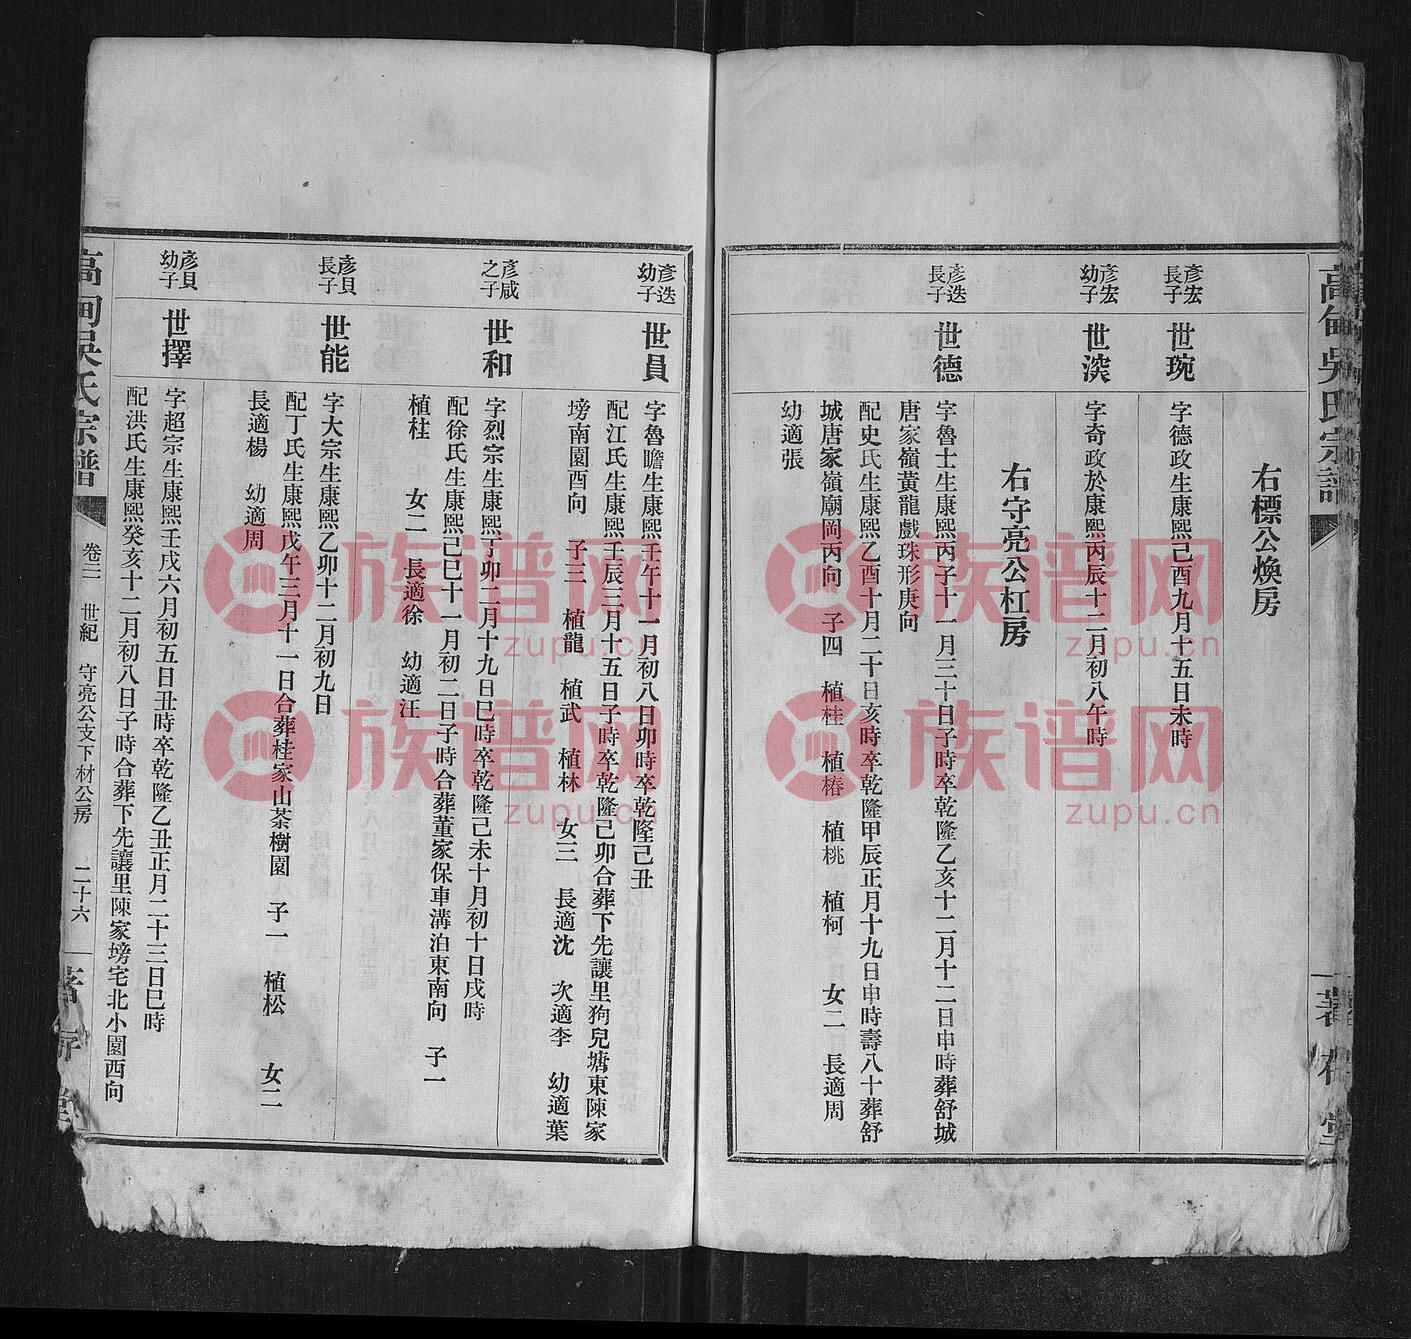 高甸吳氏宗譜
右標公煥房
彥宏長子
世琬
字德政生康熙己酉九月十五日未時
彥宏幼子
世淡
字奇政於康熙丙辰十二月初八午時
右守亮公杠房
彥迭長子
世德
字魯士生康熙丙子十一月三十日子時卒乾隆乙亥十二月十二日申時葬舒城
唐家嶺黃龍戲珠形庚向
配史氏生康熙乙酉十月二十日亥時卒乾隆甲辰正月十九日申時壽八十葬舒
城唐家嶺廟岡丙向 子四 植桂 植椿 植桃 植柯 女二 長適周
幼適張
彥迭幼子
世員
字魯瞻生康熙壬午十一月初八日卯時卒乾隆己丑
配江氏生康熙壬辰三月十五日子時卒乾隆己卯合葬下先讓里狗兒塘東陳家
塝南園酉向 子三 植龍 植武 植林 女三 長適沈 次適李 幼適葉
彥咸之子
世和
字烈宗生康熙丁卯二月十九日巳時卒乾隆己未十月初十日戌時
配徐氏生康熙己巳十一月初二日子時合葬董家保車溝泊東南向 子一
植柱 女二 長適徐 幼適汪
彥貝長子
世能
字大宗生康熙乙卯十二月初九日
配丁氏生康熙戊午三月十一日合葬桂家山茶樹園 子一 植松 女二
長適楊 幼適周
彥貝幼子
世擇
字超宗生康熙壬戌六月初五日丑時卒乾隆乙丑正月二十三日巳時
配洪氏生康熙癸亥十二月初八日子時合葬下先讓里陳家塝宅北小園西向
高甸吳氏宗譜
卷二 世紀 守亮公支下材公房 二十六
族谱网
zupu.cn
族谱网
zupu.cn
族谱网
zupu.cn
族谱网
zupu.cn